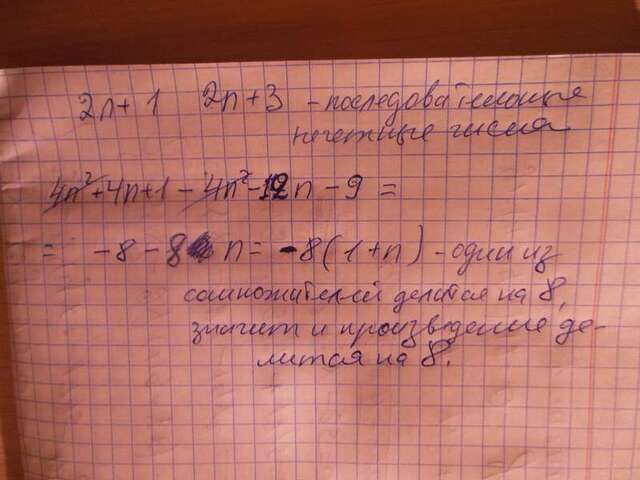 2n+1 2n+3 - последовательные
нечетные числа
4n²+4n+1-4n²-12n-9=
= -8-8n= -8(1+n) - один из
сомножителей делится на 8,
значит и произведение де-
лится на 8.